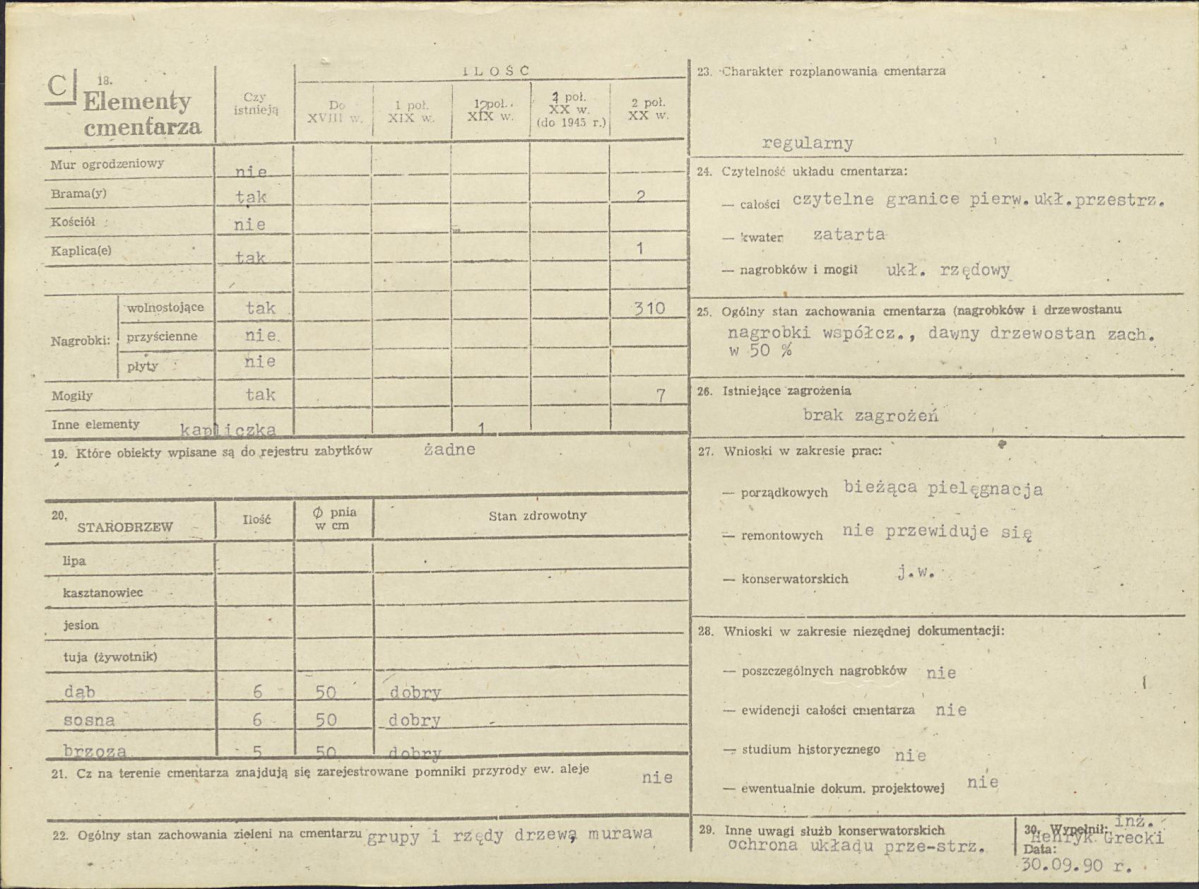 C
18.
Elementy
cmentarza
Czy
istnieją
ILOŚĆ
Do
XVIII w.
1 poł.
XIX w.
poł.
XIX w.
poł.
XX w.
(do 1945 r.)
2 poł.
XX w.
Mur ogrodzeniowy nie
Brama(y) tak 2
Kościół nie
Kaplica(e) tak 1
Nagrobki:
wolnostojące tak 310
przyścienne nie
płyty nie
Mogiły tak 7
Inne elementy kapliczka 1
19. Które obiekty wpisane są do rejestru zabytków żadne
20.
STARODRZEW Ilość Ø pnia
w cm Stan zdrowotny
lipa
kasztanowiec
jesion
tuja (żywotnik)
dąb 6 50 dobry
sosna 6 50 dobry
brzoza 5 50 dobry
21. Cz na terenie cmentarza znajdują się zarejestrowane pomniki przyrody ew. aleje nie
22. Ogólny stan zachowania zieleni na cmentarzu grupy i rzędy drzew, murawa
23. Charakter rozplanowania cmentarza
regularny
24. Czytelność układu cmentarza:
— całości czytelne granice pierw.ukł.przestrz.
— kwater zatarta
— nagrobków i mogił ukł. rzędowy
25. Ogólny stan zachowania cmentarza (nagrobków i drzewostanu
nagrobki współcz., dawny drzewostan zach.
w 50 %
26. Istniejące zagrożenia
brak zagrożeń
27. Wnioski w zakresie prac:
— porządkowych bieżąca pielęgnacja
— remontowych nie przewiduje się
— konserwatorskich j.w.
28. Wnioski w zakresie niezędnej dokumentacji:
— poszczególnych nagrobków nie
— ewidencji całości cmentarza nie
— studium historycznego nie
— ewentualnie dokum. projektowej nie
29. Inne uwagi służb konserwatorskich
ochrona układu prze-strz.
30. Wypełnił: inż.
Henryk Grecki
Data:
30.09.90 r.